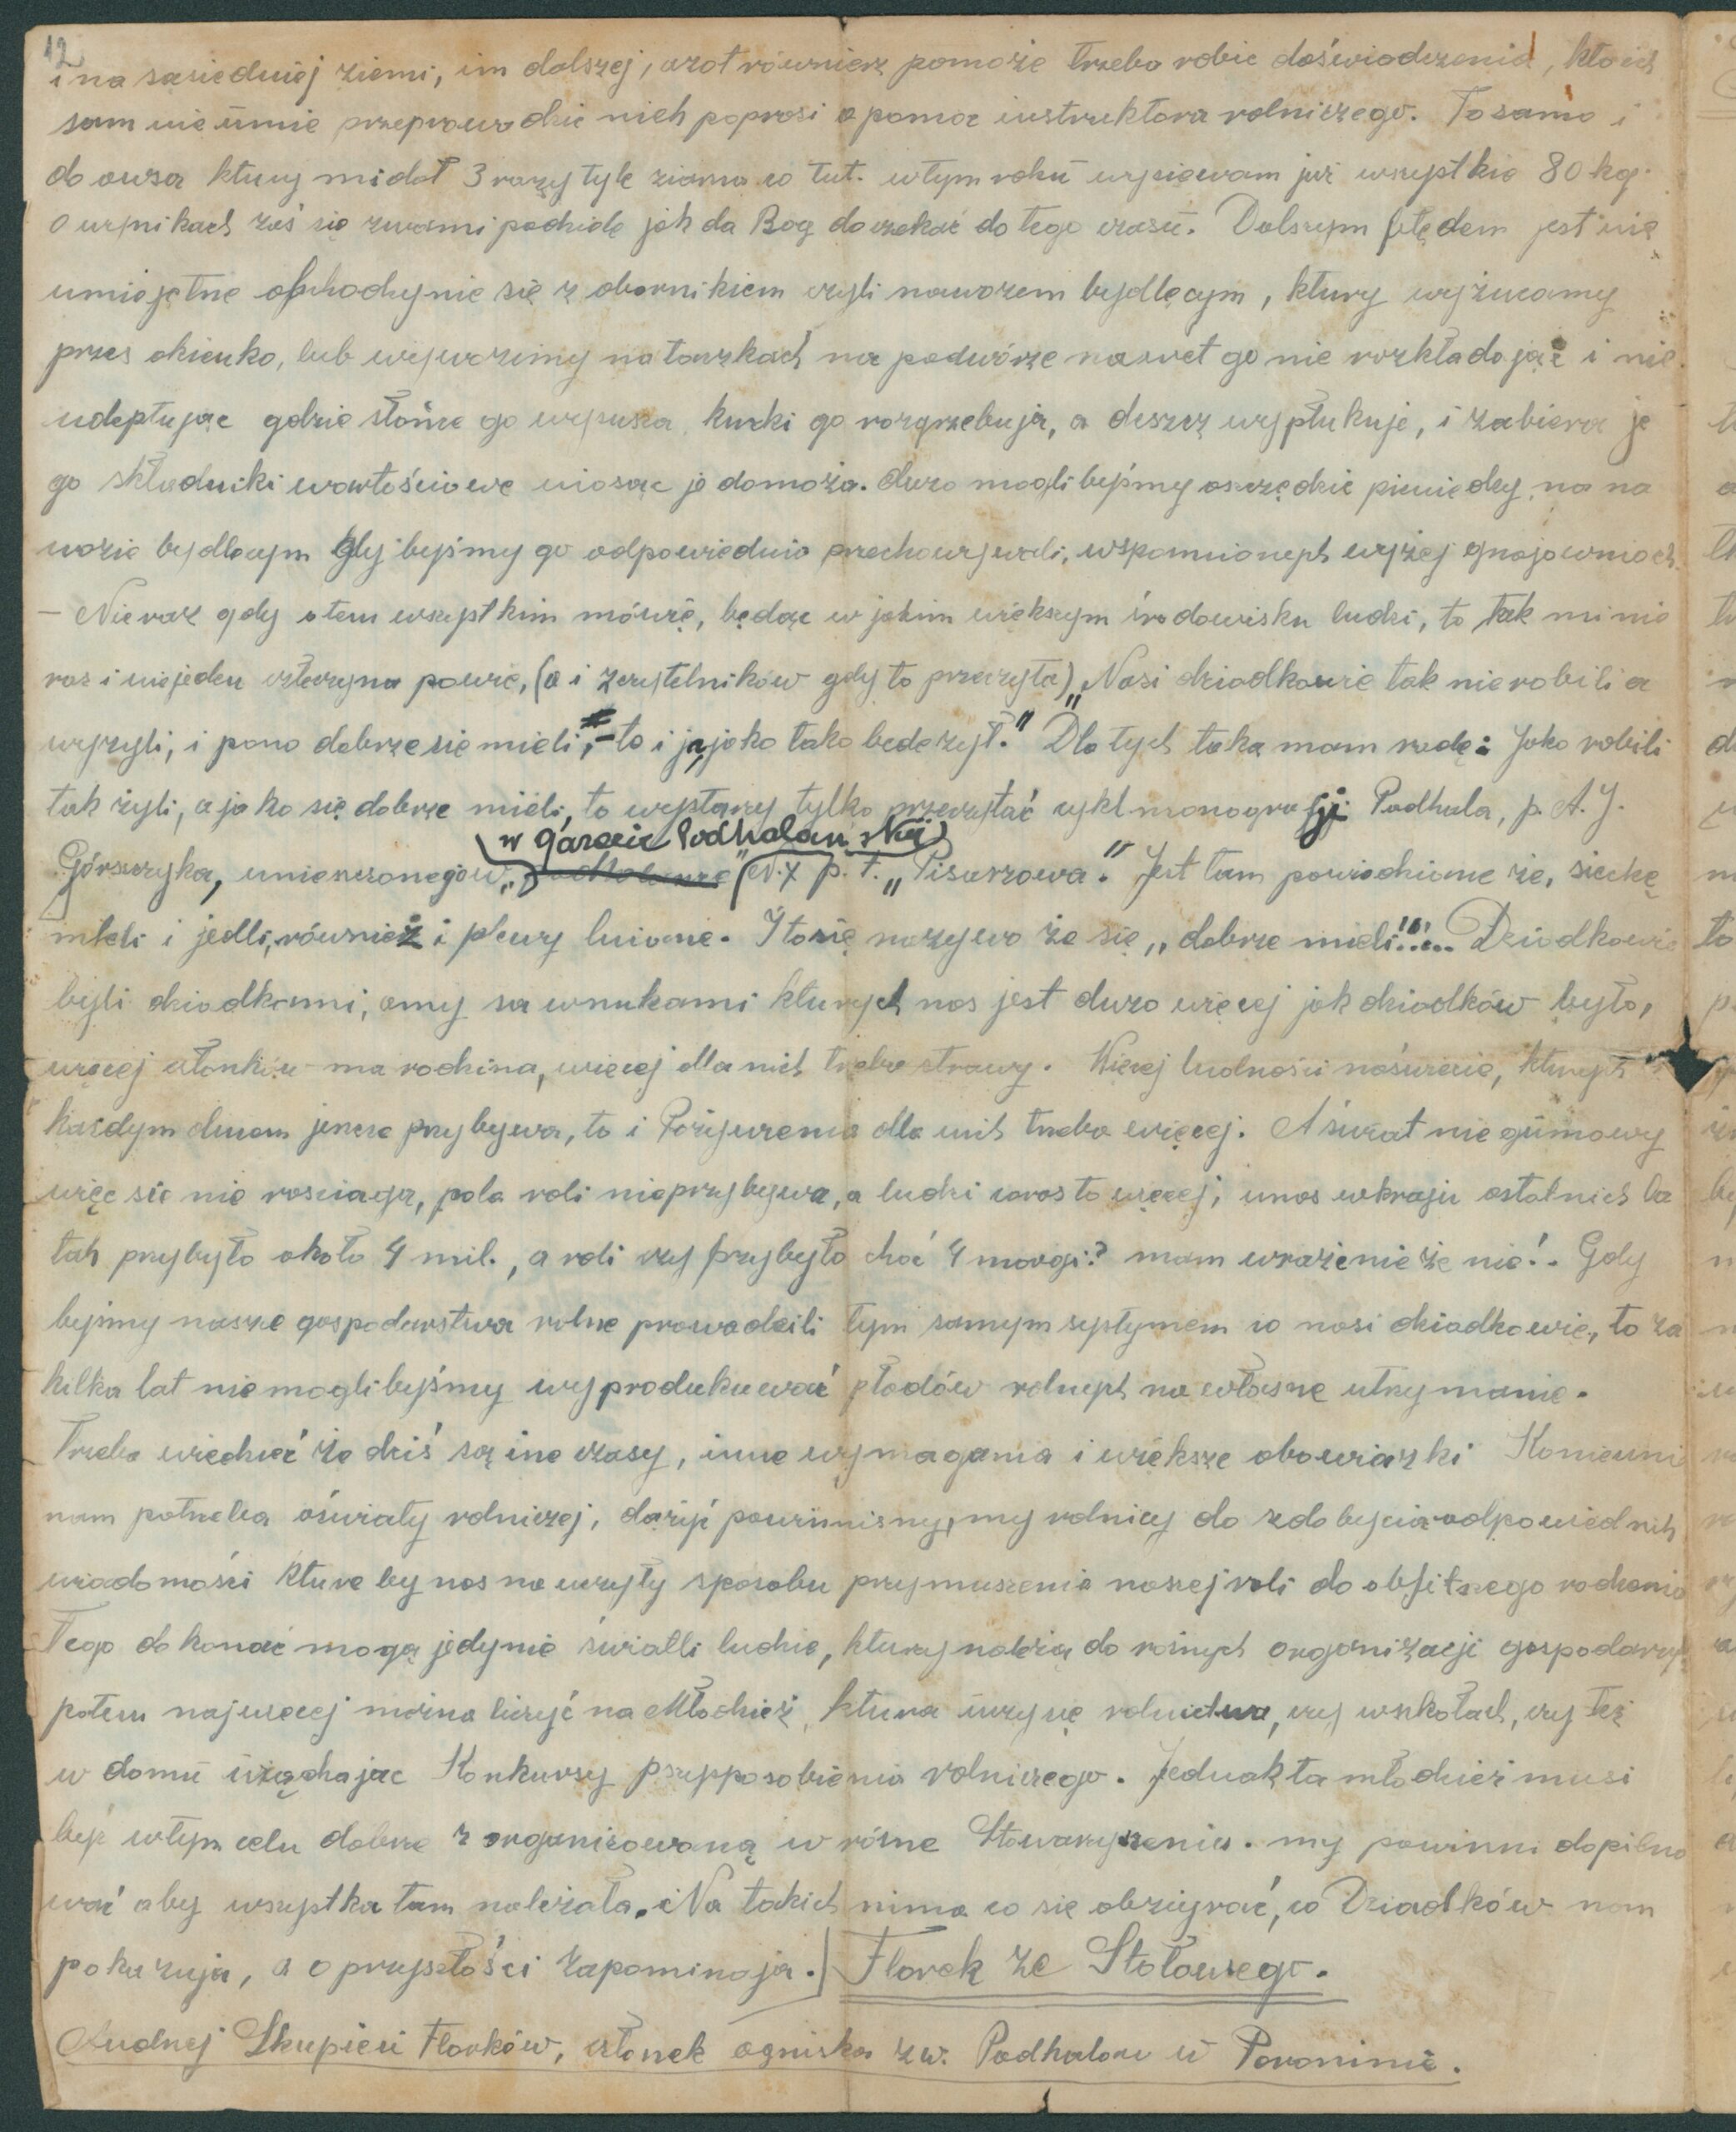 12
i na sasiedniej ziemi, im dalszej, azot również pomoże trzeba robic doświadczenia, kto ich
sam nie umie przeprowadzic niech poprosi o pomoc instruktora rolniczego. To samo i
do owsa ktury mi dał 3 razy tyle ziarna co tut. w tym roku wysiewam już wszystkie 80 kg.
o wynikach zaś się zwami podzielę jak da Bog doczekać do tego czasu. Dalszym błędem jest nie
umiejętne obchodzynie się z obornikiem czyli nawozem bydlęcym, ktury wyżucamy
przes okienko, lub wywozimy na taczkach na podwórze nawet go nie rozkładając i nie
udeptując gdzie słońce go wysusza, kurki go rozgrzebują, a deszcz wypłukuje, i zabiera je
go składniki wartościowe niosąc je do morza. duzo moglibyśmy oszczędzić pieniędzy na na
wozie bydlęcym gdy byśmy go odpowiednio przechowywali, wspomnionych wyżej gnojowniach.
– Nie raz gdy o tem wszystkim mówię, będąc w jakim większym środowisku ludzi, to tak mi nie
raz i niejeden człeczyna powie, (a i z czytelników gdy to przeczyta) „Nasi dziadkowie tak nie robili a
wyżyli, i pono dobrze sie mieli, – to i ja jako tako bede żył." Dla tych taką mam radę: Jako robili
tak żyli, a jako się dobrze mieli, to wystarcy tylko przeczytać cykl monografji Podhala, p. A. J.
w Gazecie Podhalańskiej
Górszczyka, umieszczonego w „ N. X p. t. „Pisarzowa." Jest tam powiedziane że, sieckę
mleli i jedli, również i plewy lniane. I to się nazywa że się „dobrze mieli"!!... Dziadkowie
byli dziadkami, a my sa wnukami kturych nas jest duzo więcej jak dziadków było,
więcej członków ma rodzina, więcej dla nich trzeba strawy. Więcej ludnosci na świecie, kturych
kazdym dniem jeszcze przybywa, to i Pożywienia dla nich trzeba więcej. A świat nie gumowy
więc sie nie rosciaga, pola roli nie przybywa, a ludzi coras to więcej, u nas w kraju ostatnich la
tah przybyło około 4 mil., a roli czy przybyło choć 4 morgi? mam wrażenie że nie!. Gdy
byśmy nasze gospodarstwa rolne prowadzili tym samym systymem co nasi dziadkowie, to za
kilka lat nie moglibyśmy wyprodukować płodów rolnych na własne utrzymanie.
Trzeba wiedzieć że dziś są ine czasy, inne wymagania i większe obowiazki Konieczni
nam potrzeba oświaty rolniczej, dążyć powinnismy, my rolnicy do zdobycia odpowiednich
wiadomości kture by nas nauczyły sposobu przymuszenia naszej roli do obfitszego rodzenia
Tego dokonać mogą jedynie światli ludzie, kturzy należą do rożnych organizacji gospodarczych
potem najwiecej można liczyć na Młodzież, ktura uczy się rolnictwa, czy w szkołach, czy też
w domu urządzając Konkursy przysposobienia rolniczego. Jednak ta młodzież musi
być w tym celu dobrze zorganizowaną w różne Stowarzyszenia. my powinni dopilno
wać aby wszystka tam należała. Na takich nima co się obzirać, co Dziadków nam
pokazuja, a o przyszłości zapominaja. Florek ze Stołowego.
Andrzej Skupień Florków, członek ogniska zw. Podhalan w Poroninie.